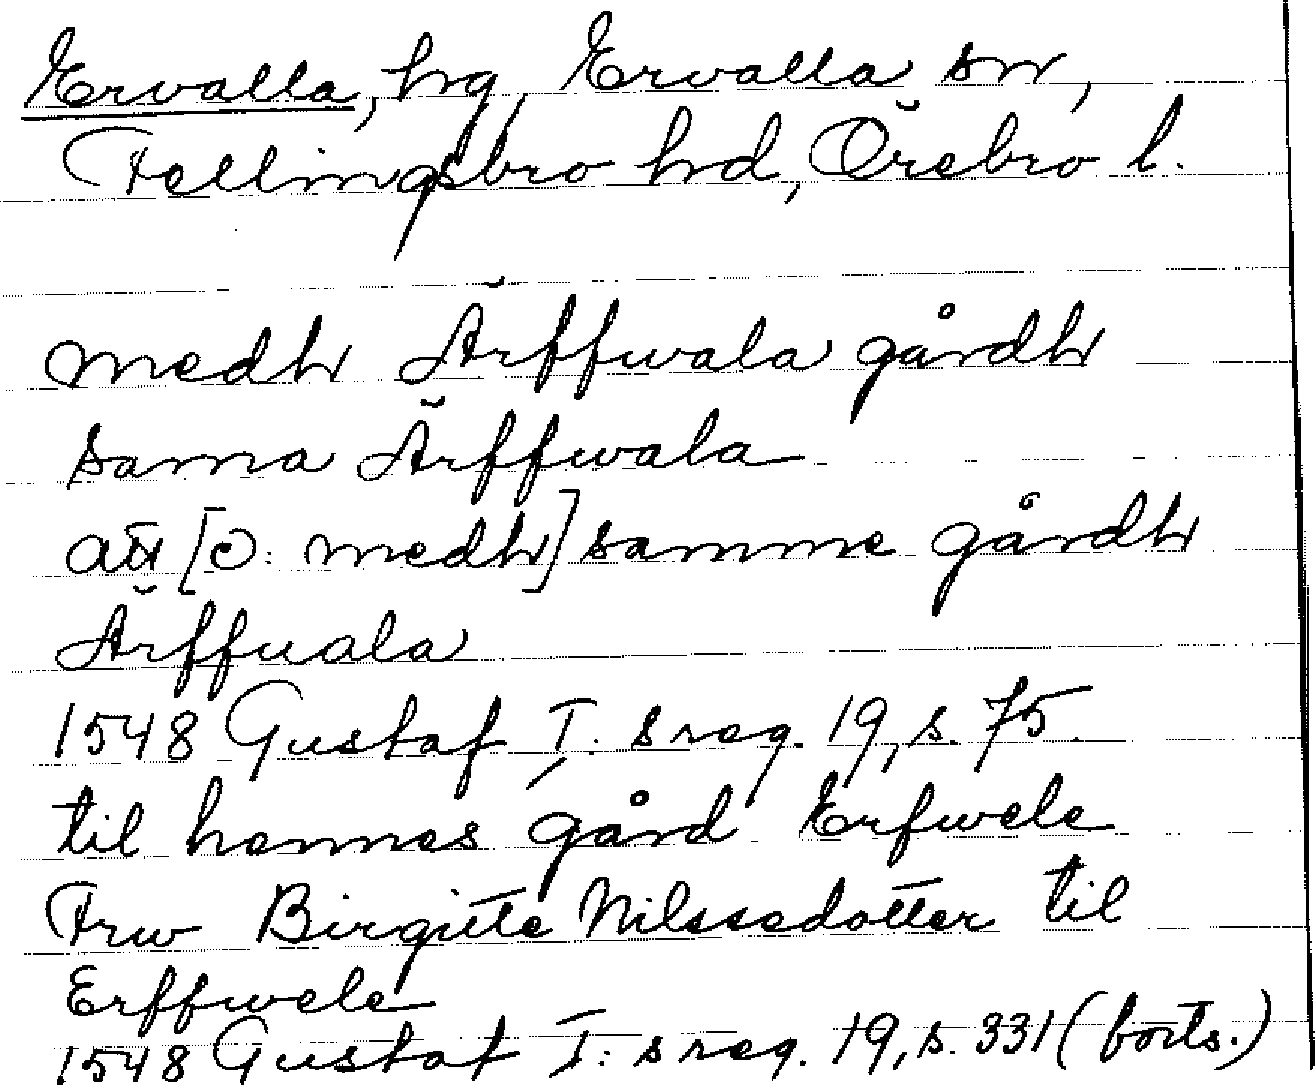 Ervalla, hg, Ervalla sn,
Fellingsbro hd, Örebro l.
medh Ärffwala gårdh
sama Ärffwala
att [ɔ: medh] samme gårdh
Ärffuala
1548 Gustaf I: s reg. 19, s. 75
til hennes gård Erfwele
Frw Birgitte Nilssedotter til
Erffwele
1548 Gustaf I: s reg. 19, s. 331 (forts.)